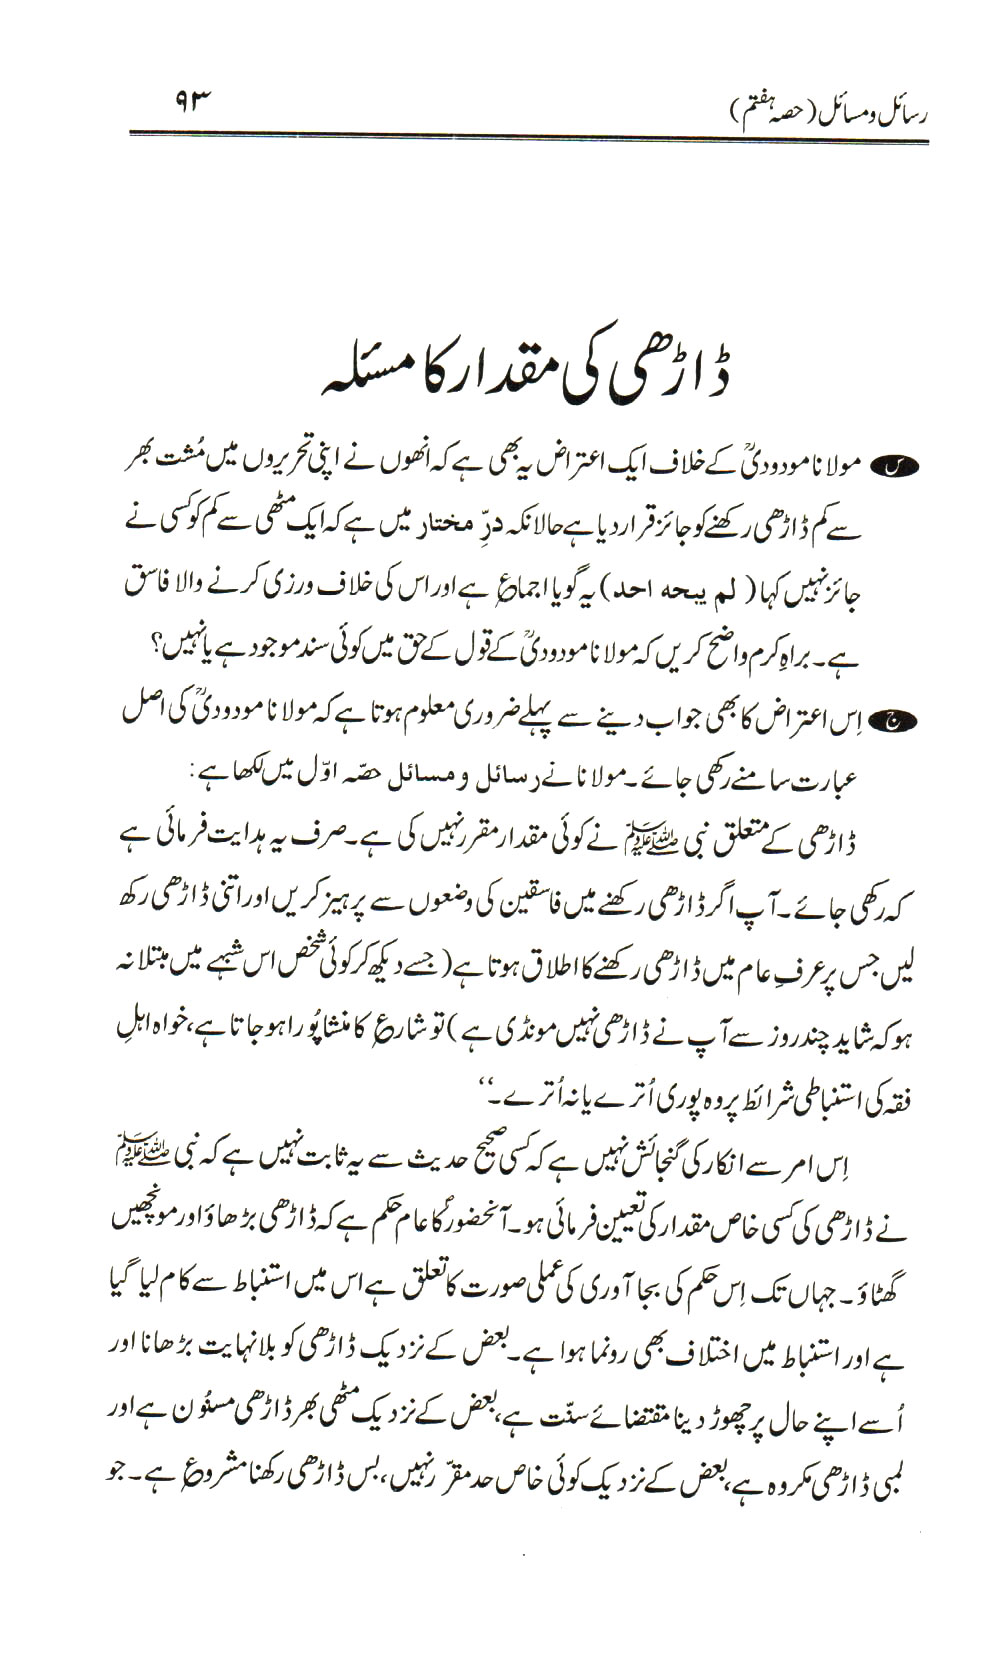 رسائل و مسائل (حصہ ہفتم) ۹۳
ڈاڑھی کی مقدار کا مسئلہ
س مولانا مودودیؒ کے خلاف ایک اعتراض یہ بھی ہے کہ انھوں نے اپنی تحریروں میں مُشت بھر
سے کم ڈاڑھی رکھنے کو جائز قرار دیا ہے حالانکہ درِّ مختار میں ہے کہ ایک مٹھی سے کم کو کسی نے
جائز نہیں کہا (لم یبحه احد) یہ گویا اجماع ہے اور اس کی خلاف ورزی کرنے والا فاسق
ہے۔ براہِ کرم واضح کریں کہ مولانا مودودیؒ کے قول کے حق میں کوئی سند موجود ہے یا نہیں؟
ج اِس اعتراض کا بھی جواب دینے سے پہلے ضروری معلوم ہوتا ہے کہ مولانا مودودیؒ کی اصل
عبارت سامنے رکھی جائے۔ مولانا نے رسائل و مسائل حصّہ اوّل میں لکھا ہے:
ڈاڑھی کے متعلق نبی ﷺ نے کوئی مقدار مقرر نہیں کی ہے۔ صرف یہ ہدایت فرمائی ہے
کہ رکھی جائے۔ آپ اگر ڈاڑھی رکھنے میں فاسقین کی وضعوں سے پرہیز کریں اور اتنی ڈاڑھی رکھ
لیں جس پر عرفِ عام میں ڈاڑھی رکھنے کا اطلاق ہوتا ہے (جسے دیکھ کر کوئی شخص اس شبہے میں مبتلا نہ
ہو کہ شاید چند روز سے آپ نے ڈاڑھی نہیں مونڈی ہے) تو شارع کا منشا پُورا ہو جاتا ہے، خواہ اہلِ
فقہ کی استنباطی شرائط پر وہ پوری اُترے یا نہ اُترے۔‘‘
اِس امر سے انکار کی گنجائش نہیں ہے کہ کسی صحیح حدیث سے یہ ثابت نہیں ہے کہ نبی ﷺ
نے ڈاڑھی کی کسی خاص مقدار کی تعیین فرمائی ہو۔ آنحضورؐ کا عام حکم ہے کہ ڈاڑھی بڑھاؤ اور مونچھیں
گھٹاؤ۔ جہاں تک اِس حکم کی بجا آوری کی عملی صورت کا تعلق ہے اس میں استنباط سے کام لیا گیا
ہے اور استنباط میں اختلاف بھی رونما ہوا ہے۔ بعض کے نزدیک ڈاڑھی کو بلا نہایت بڑھانا اور
اُسے اپنے حال پر چھوڑ دینا مقتضائے سنّت ہے، بعض کے نزدیک مٹھی بھر ڈاڑھی مسنُون ہے اور
لمبی ڈاڑھی مکروہ ہے، بعض کے نزدیک کوئی خاص حد مقرّر نہیں، بس ڈاڑھی رکھنا مشروع ہے۔ جو